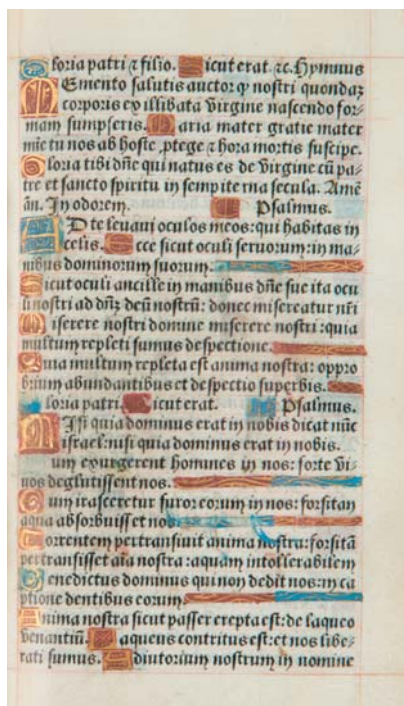 Gloria patri ⁊ filio. Sicut erat. ⁊c. Hymnus
Memento salutis auctor ꝙ nostri quondaꝫ
corporis ex illibata virgine nascendo for⸗
mam sumpseris. Maria mater gratie mater
mīe tu nos ab hoste ꝓtege ⁊ hora mortis suscipe.
Gloria tibi dn̄e qui natus es de virgine cū pa⸗
tre et sancto spiritu in sempiterna secula. Amē
ān. In odorem. Psalmus.
AD te leuaui oculos meos: qui habitas in
celis. Ecce sicut oculi seruorum: in ma⸗
nibus dominorum suorum.
Sicut oculi ancille in manibus dn̄e sue ita ocu
li nostri ad dn̄ꝫ deū nostrū: donec misereatur nr̄i
Miserere nostri domine miserere nostri: quia
multum repleti sumus despectione.
Quia multum repleta est anima nostra: oppro
brium abundantibus et despectio superbis.
Gloria patri. Sicut erat. Psalmus.
NIsi quia dominus erat in nobis dicat nūc
israel: nisi quia dominus erat in nobis.
Cum exurgerent homines in nos: forte vi⸗
uos deglutissent nos.
Cum irasceretur furor eorum in nos: forsitan
aqua absorbuisset nos.
Torrentem pertransiuit anima nostra: forsitā
pertransisset aīa nostra: aquam intollerabilem
Benedictus dominus qui non dedit nos: in ca
ptione dentibus eorum.
Anima nostra sicut passer erepta est: de laqueo
venantiū. Laqueus contritus est: et nos libe⸗
rati sumus. Adiutorium nostrum in nomine